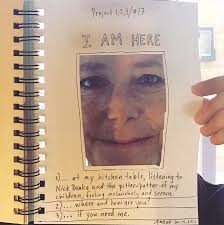 I AM HERE
1)... at my kitchen table, listening to
Nick Drake and the pitter-patter of my
children, feeling melancholy and serene.
2)... where and how are you?
3)... if you need me.